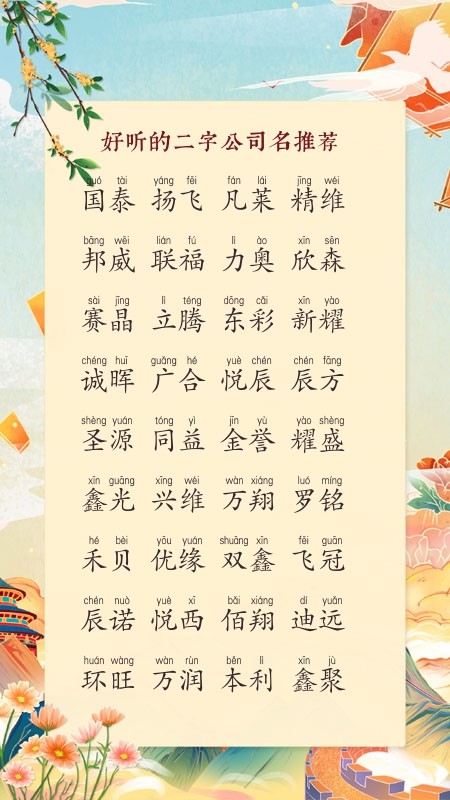 好听的二字公司名推荐
guó tài yáng fēi fán lái jīng wéi
国泰 扬飞 凡莱 精维
bāng wēi lián fú lì ào xīn sēn
邦威 联福 力奥 欣森
sài jīng lì téng dōng cǎi xīn yào
赛晶 立腾 东彩 新耀
chéng huī guǎng hé yuè chén chén fāng
诚晖 广合 悦辰 辰方
shèng yuán tóng yì jīn yù yào shèng
圣源 同益 金誉 耀盛
xīn guāng xīng wéi wàn xiáng luó míng
鑫光 兴维 万翔 罗铭
hé bèi yōu yuán shuāng xīn fēi guān
禾贝 优缘 双鑫 飞冠
chén nuò yuè xī bǎi xiáng dí yuǎn
辰诺 悦西 佰翔 迪远
huán wàng wàn rùn běn lì xīn jù
环旺 万润 本利 鑫聚